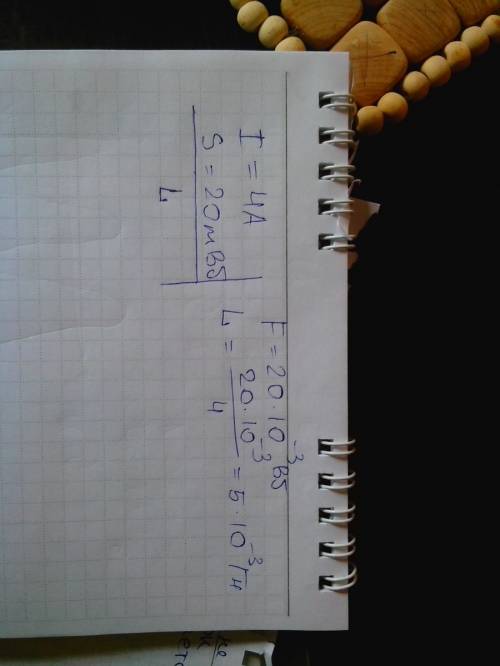 I = 4A
S = 20мВб
L
F = 20 · 10⁻³ Вб
L = 20 · 10⁻³ / 4 = 5 · 10⁻³ Гн